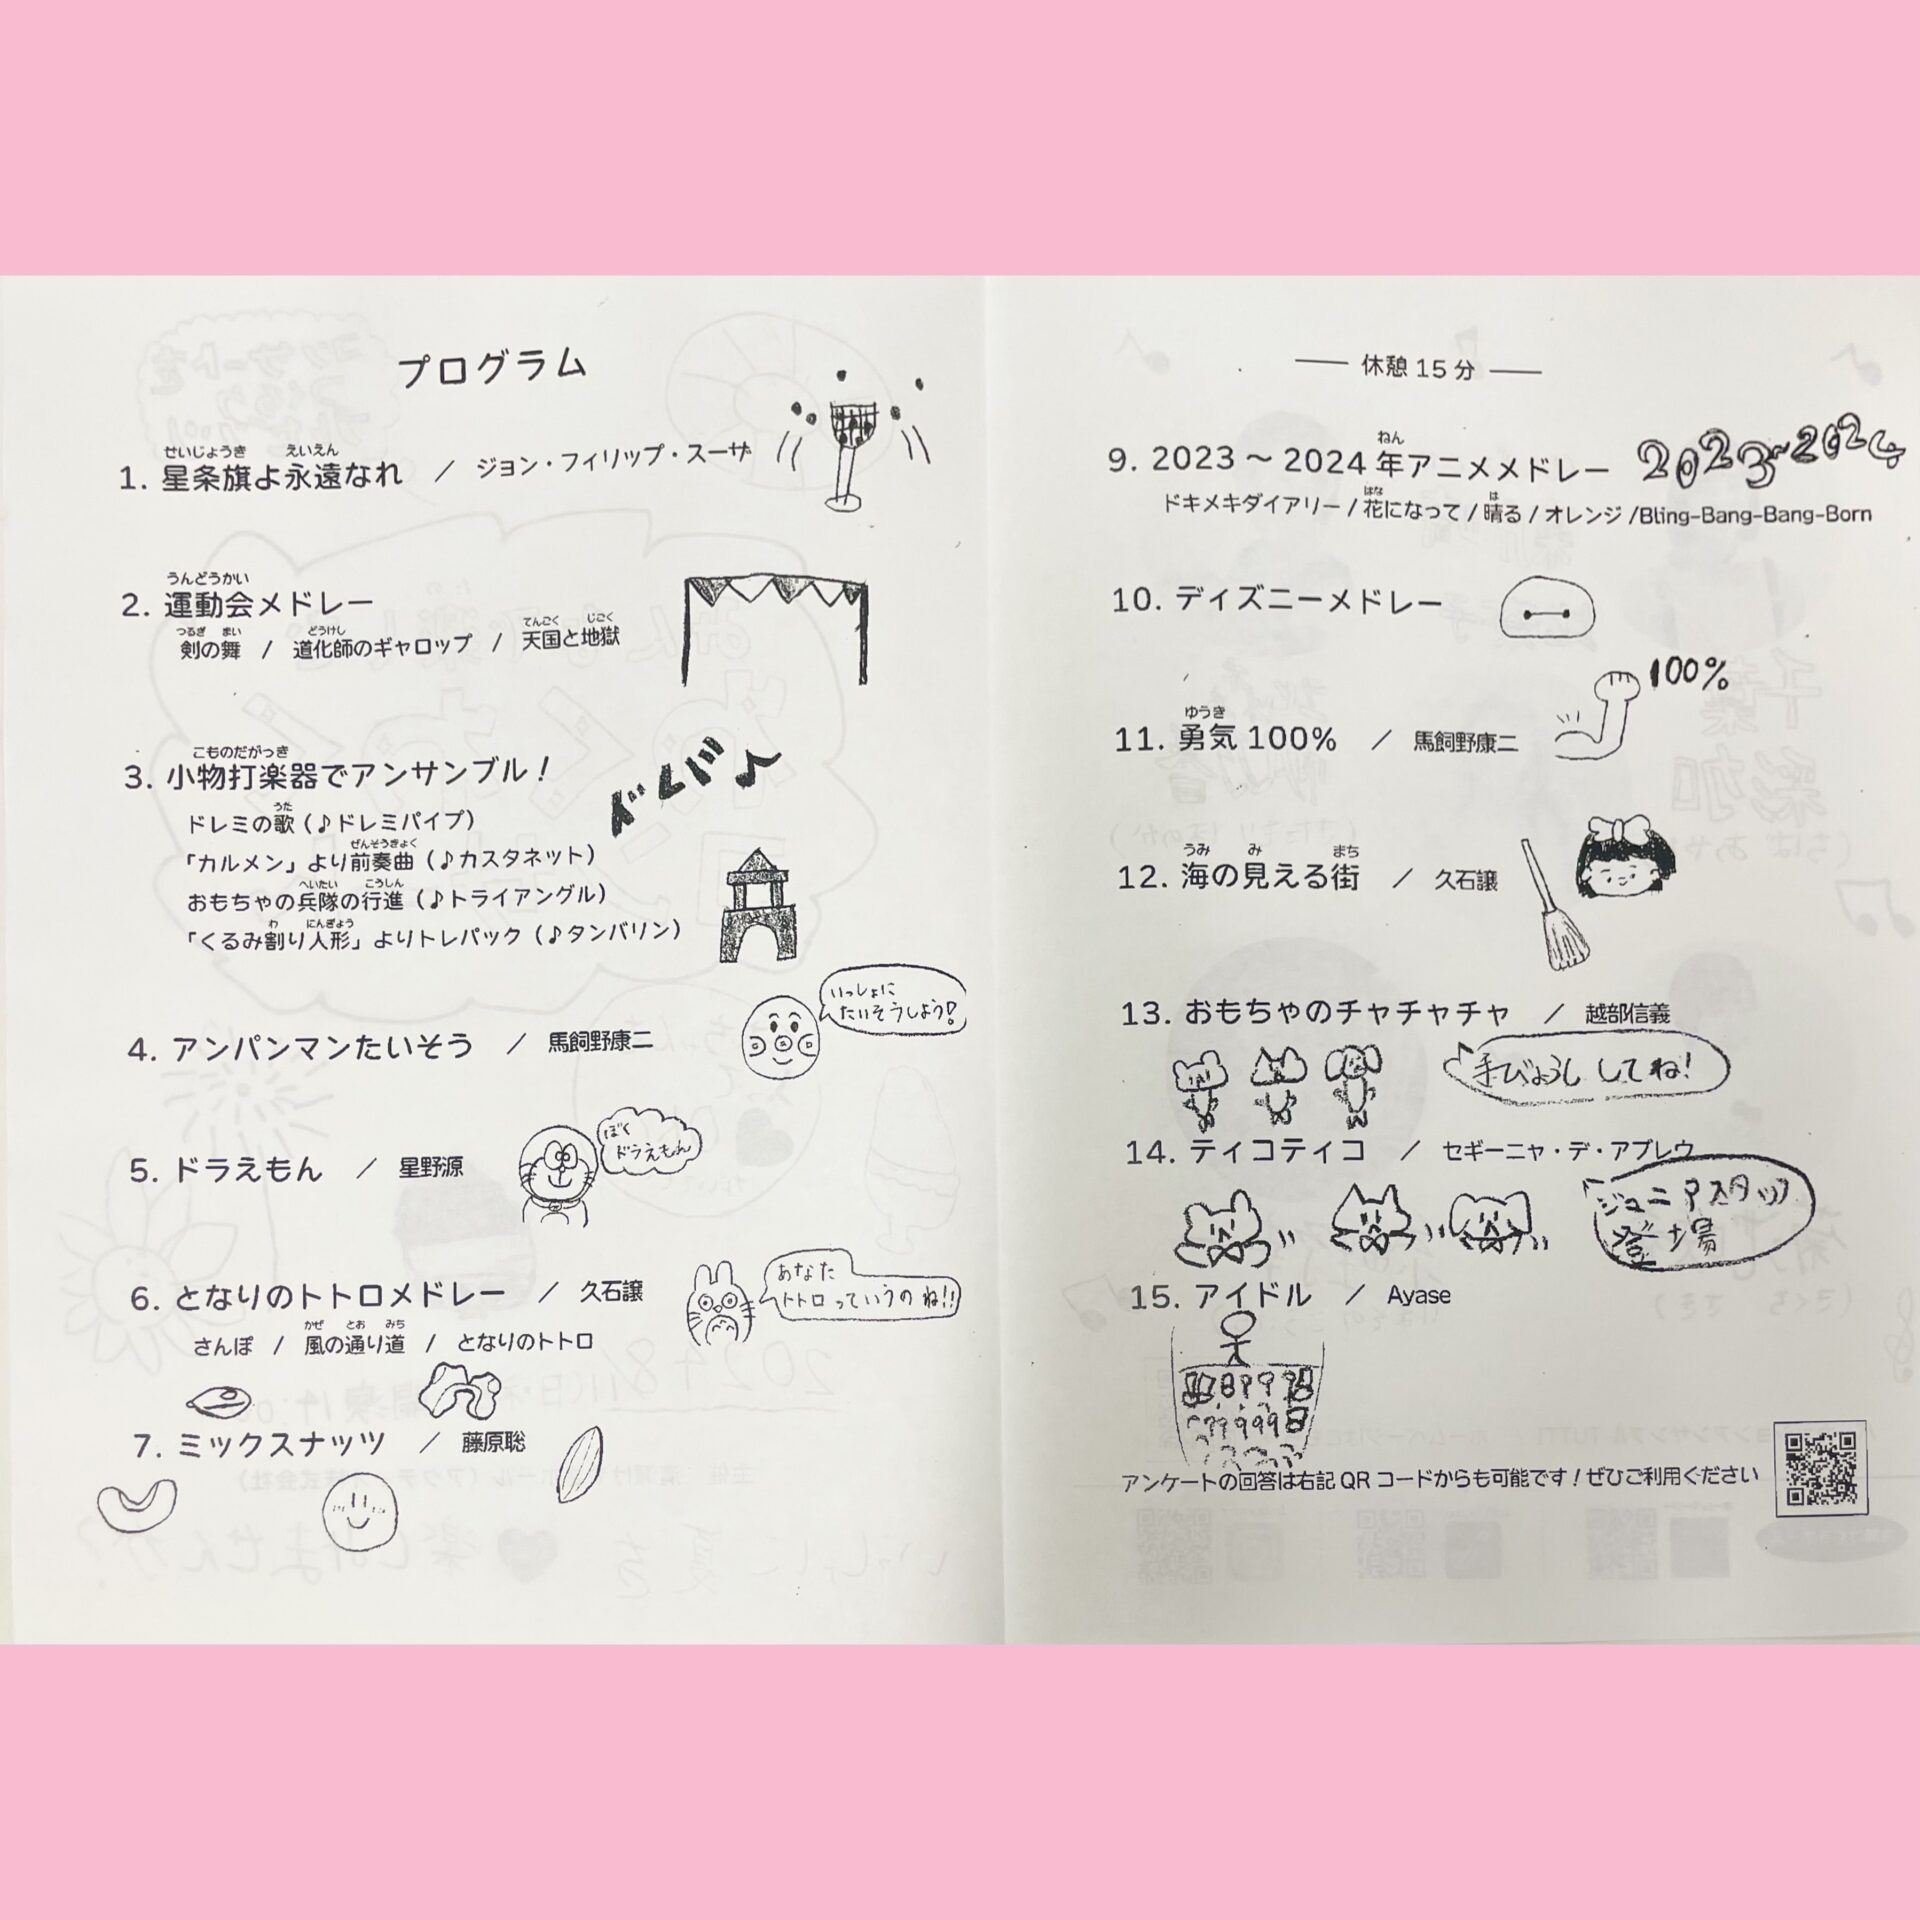 プログラム
せいじょうき えいえん
1. 星条旗よ永遠なれ / ジョン・フィリップ・スーザ
うんどうかい
2. 運動会メドレー
つるぎ まい どうけし てんごく じごく
剣の舞 / 道化師のギャロップ / 天国と地獄
こものだがっき
3. 小物打楽器でアンサンブル!
ドレミ♪
うた
ドレミの歌(♪ドレミパイプ)
ぜんそうきょく
「カルメン」より前奏曲(♪カスタネット)
へいたい こうしん
おもちゃの兵隊の行進(♪トライアングル)
わ にんぎょう
「くるみ割り人形」よりトレパック(♪タンバリン)
いっしょに
たいそうしよう!
4. アンパンマンたいそう / 馬飼野康二
ぼく
ドラえもん
5. ドラえもん / 星野源
あなた
トトロっていうのね!!
6. となりのトトロメドレー / 久石譲
かぜ とお みち
さんぽ / 風の通り道 / となりのトトロ
7. ミックスナッツ / 藤原聡
休憩15分
ねん
9. 2023～2024年アニメメドレー
2023~2024
はな は
ドキメキダイアリー/花になって/晴る/オレンジ/Bling-Bang-Bang-Born
10. ディズニーメドレー
100%
ゆうき
11. 勇気100% / 馬飼野康二
うみ み まち
12. 海の見える街 / 久石譲
13. おもちゃのチャチャチャ / 越部信義
手びょうし してね!
14. ティコティコ / セギーニャ・デ・アブレウ
ジュニアスタッフ
登場
15. アイドル / Ayase
アンケートの回答は右記QRコードからも可能です!ぜひご利用ください